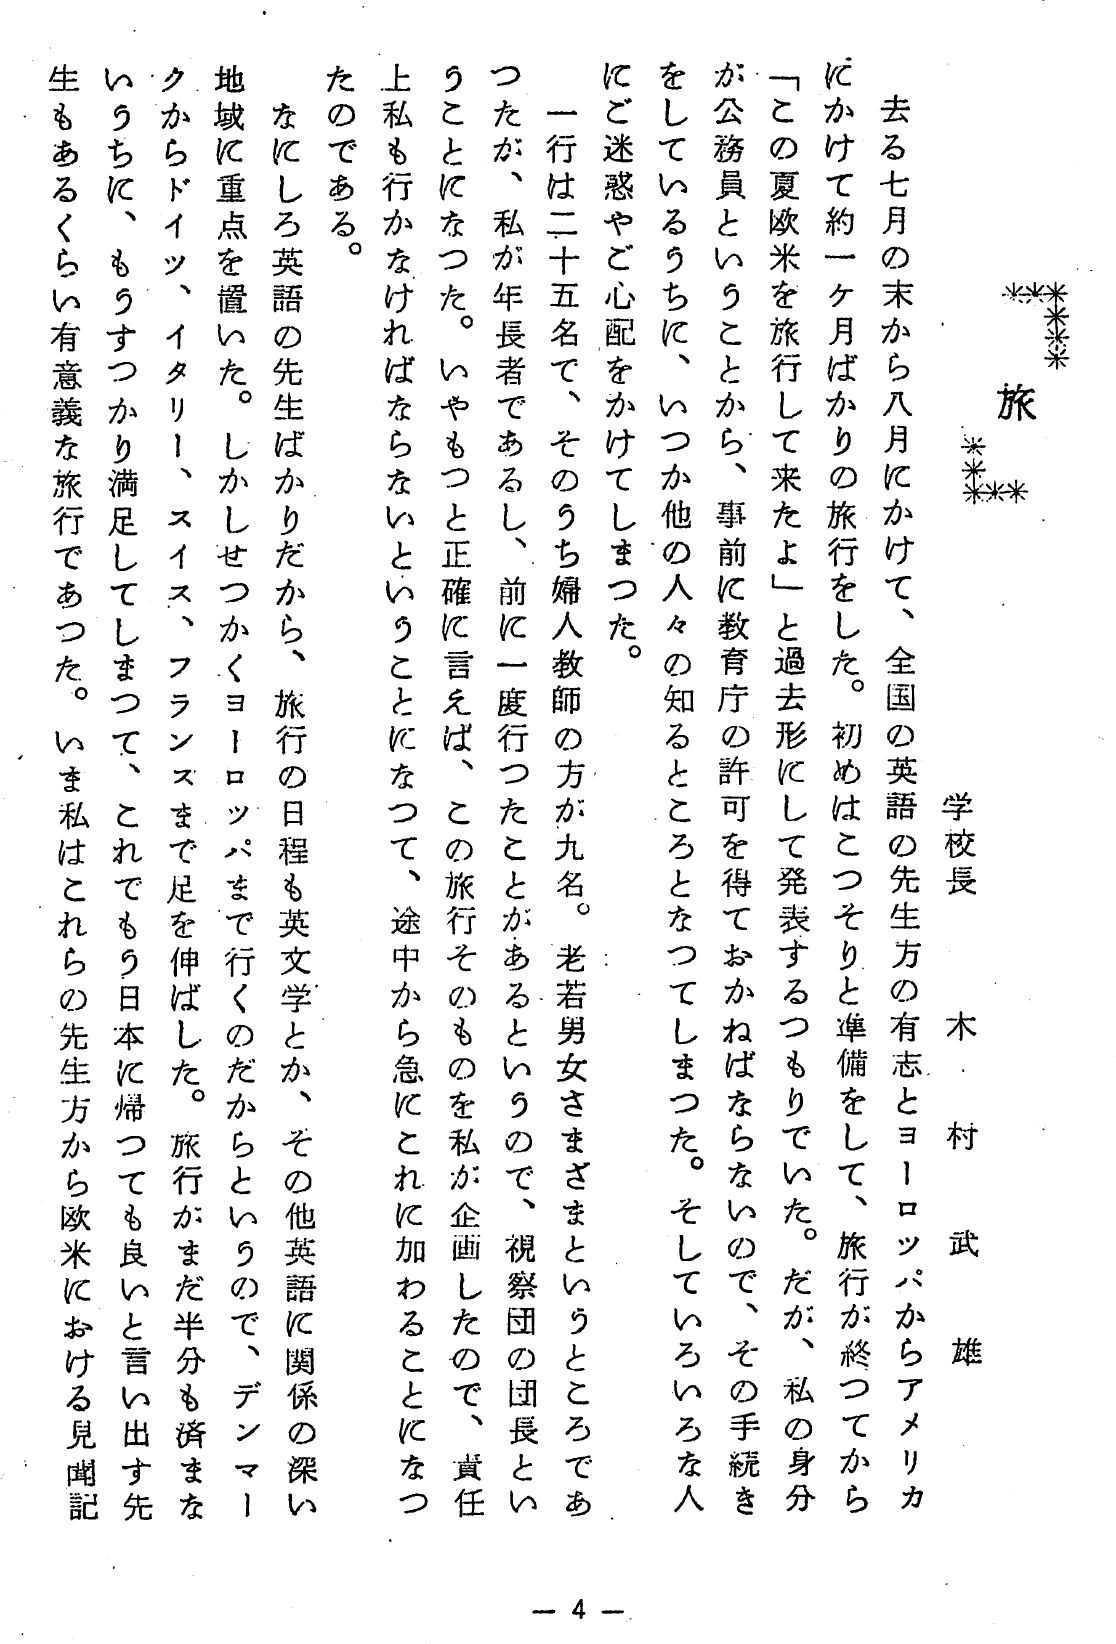 旅
学校長　木村武雄
去る七月の末から八月にかけて、全国の英語の先生方の有志とヨーロッパからアメリカ
にかけて約一ヶ月ばかりの旅行をした。初めはこつそりと準備をして、旅行が終つてから
「この夏欧米を旅行して来たよ」と過去形にして発表するつもりでいた。だが、私の身分
が公務員ということから、事前に教育庁の許可を得ておかねばならないので、その手続き
をしているうちに、いつか他の人々の知るところとなつてしまつた。そしていろいろな人
にご迷惑やご心配をかけてしまつた。
一行は二十五名で、そのうち婦人教師の方が九名。老若男女さまざまというところであ
つたが、私が年長者であるし、前に一度行つたことがあるというので、視察団の団長とい
うことになつた。いやもつと正確に言えば、この旅行そのものを私が企画したので、責任
上私も行かなければならないということになつて、途中から急にこれに加わることになつ
たのである。
なにしろ英語の先生ばかりだから、旅行の日程も英文学とか、その他英語に関係の深い
地域に重点を置いた。しかしせつかくヨーロッパまで行くのだからというので、デンマー
クからドイツ、イタリー、スイス、フランスまで足を伸ばした。旅行がまだ半分も済まな
いうちに、もうすつかり満足してしまつて、これでもう日本に帰つても良いと言い出す先
生もあるくらい有意義な旅行であつた。いま私はこれらの先生方から欧米における見聞記
— 4 —